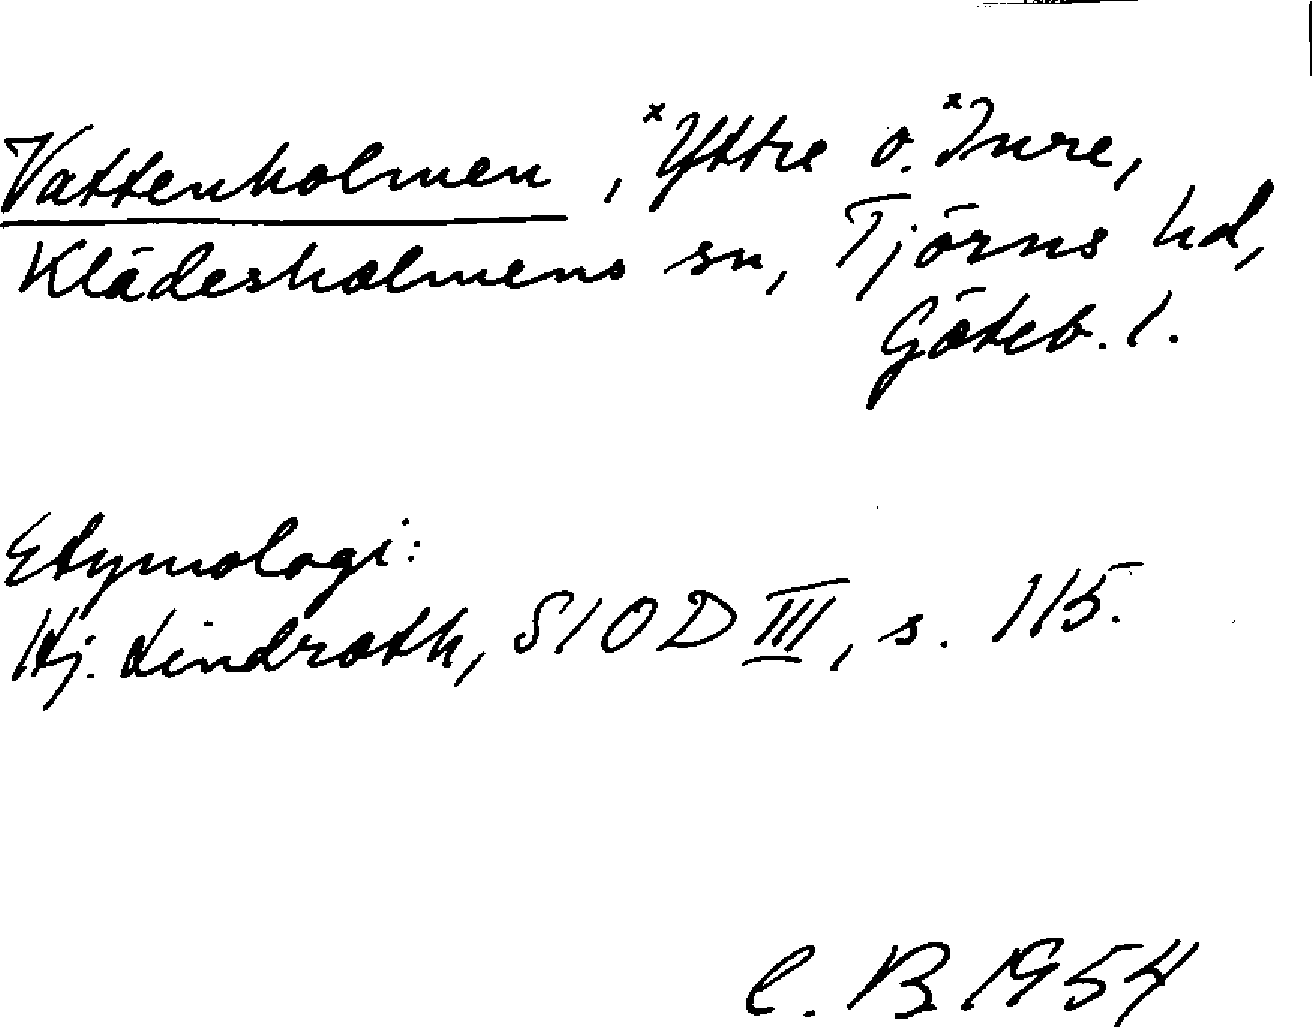 Vattenholmen, ˣYttre o. ˣInre,
Klädesholmens sn, Tjörns hd,
Göteb. l.
Etymologi:
Hj. Lindroth, SIOD III, s. 115.
C. B 1954